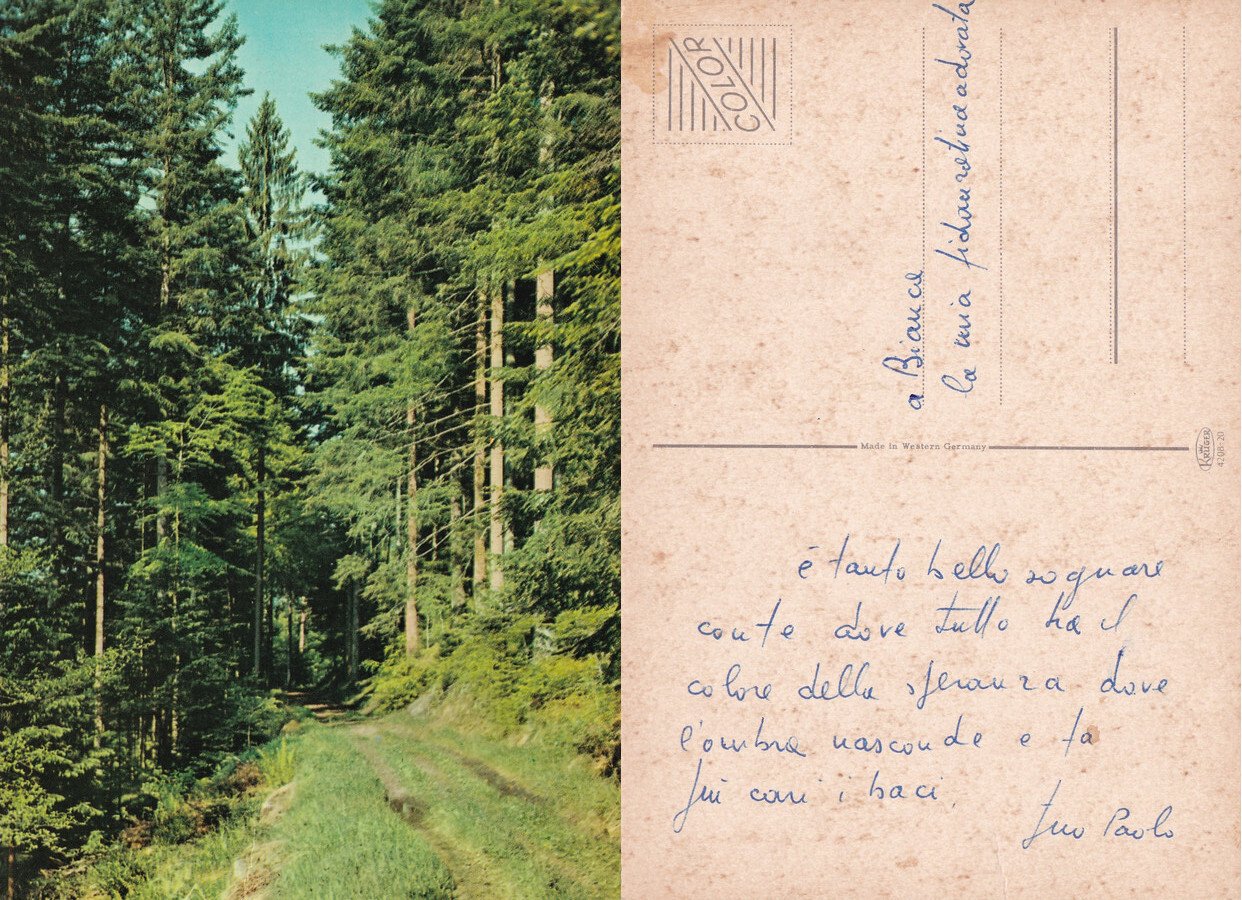 COLOR
a Bianca
la mia fidanzatina adorata
Made in Western Germany
KRÜGER
4208-20
é tanto bello sognare
con te dove tutto ha il
colore della speranza dove
l'ombra nasconde e fa
più cari i baci.
tuo Paolo